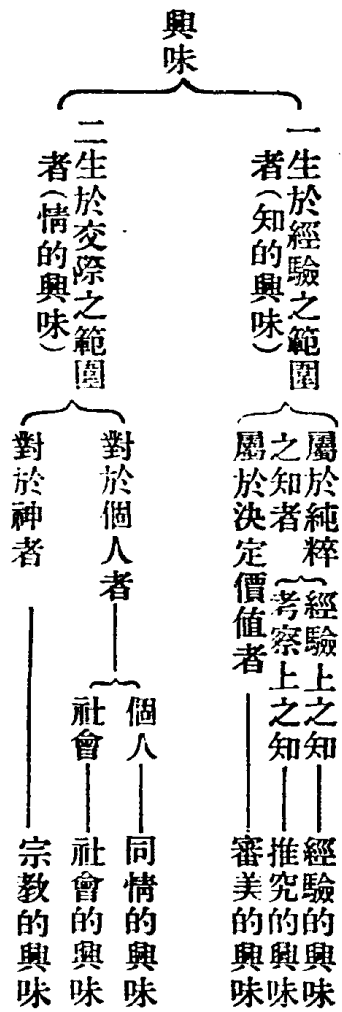 興味
一生於經驗之範圍
者(知的興味)
屬於純粹
之知者
經驗上之知
經驗的興味
考察上之知
推究的興味
屬於決定價值者
審美的興味
二生於交際之範圍
者(情的興味)
對於個人者
個人
同情的興味
社會
社會的興味
對於神者
宗教的興味